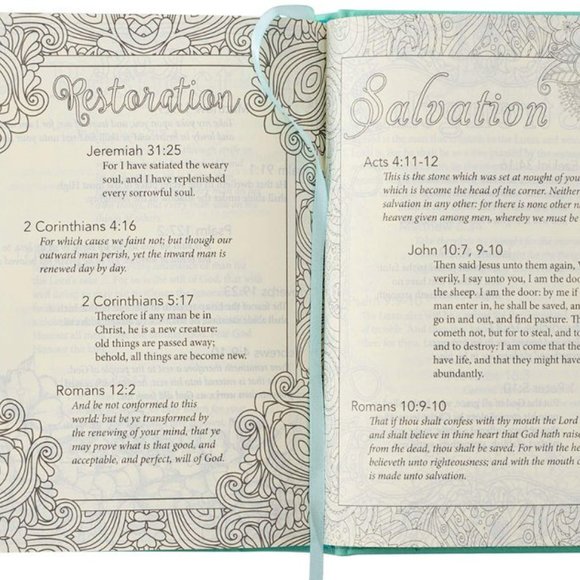 Restoration
Jeremiah 31:25
For I have satiated the weary
soul, and I have replenished
every sorrowful soul.
2 Corinthians 4:16
For which cause we faint not; but though our
outward man perish, yet the inward man is
renewed day by day.
2 Corinthians 5:17
Therefore if any man be in
Christ, he is a new creature:
old things are passed away;
behold, all things are become new.
Romans 12:2
And be not conformed to this
world: but be ye transformed by
the renewing of your mind, that ye
may prove what is that good, and
acceptable, and perfect, will of God.
Salvation
Acts 4:11-12
This is the stone which was set at nought of you
which is become the head of the corner. Neither
salvation in any other: for there is none other
heaven given among men, whereby we must be
John 10:7, 9-10
Then said Jesus unto them again,
verily, I say unto you, I am the
the sheep. I am the door: by me if
man enter in, he shall be saved, and
go in and out, and find pasture. Th
cometh not, but for to steal, and to
and to destroy: I am come that the
have life, and that they might have
abundantly.
Romans 10:9-10
That if thou shalt confess with thy mouth the Lord
and shalt believe in thine heart that God hath raise
from the dead, thou shalt be saved. For with the he
believeth unto righteousness; and with the mouth
is made unto salvation.